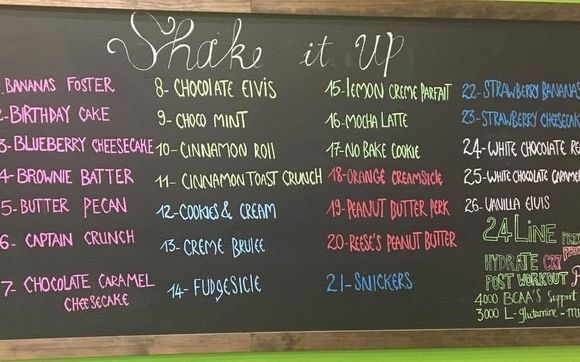 Shake it UP
1. BANANAS FOSTER
2-BIRTHDAY CAKE
3-BLUEBERRY CHEESECAKE
4-BROWNIE BATTER
5-BUTTER PECAN
6- CAPTAIN CRUNCH
7- CHOCOLATE CARAMEL
CHEESECAKE
8- CHOCOLATE ELVIS
9- CHOCO MINT
10- CINNAMON ROLL
11- CINNAMON TOAST CRUNCH
12-COOKIES & CREAM
13- CREME BRULEE
14- FUDGESICLE
15-LEMON CREME PARFAIT
16-MOCHA LATTE
17-NO BAKE COOKIE
18-ORANGE CREAMSICLE
19-PEANUT BUTTER PERK
20-REESE'S PEANUT BUTTER
21-SNICKERS
22-STRAWBERRY BANANAS
23-STRAWBERRY CHEESECAKE
24-WHITE CHOCOLATE
25-WHITE CHOCOLATE CARAMEL
26-VANILLA ELVIS
24 LINE
HYDRATE CR7
POST WORKOUT
4000 BCAA'S Support
3000 L-glutamine